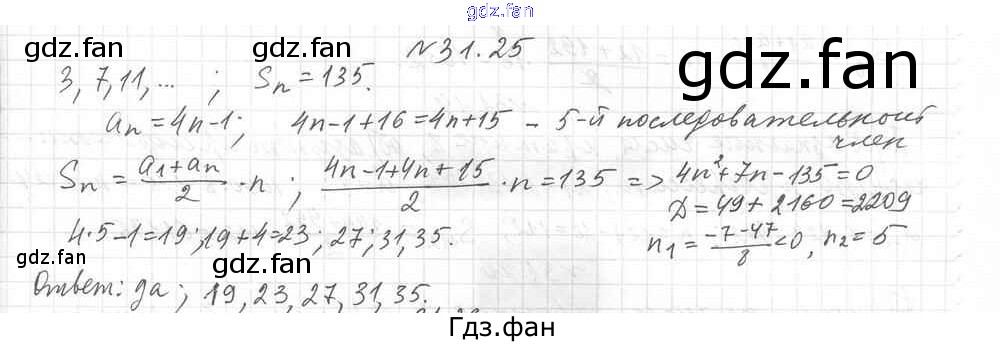 gdz.fan
gdz.fan
gdz.fan
gdz.fan
№31.25
3, 7, 11, ... ; Sn = 135.
an = 4n-1; 4n-1+16 = 4n+15 - 5-й последовательный член
Sn = (a1+an)/2 · n ; (4n-1+4n+15)/2 · n = 135 => 4n²+7n-135=0
D = 49+2160 = 2209
4·5-1=19; 19+4=23; 27; 31, 35.
n1 = (-7-47)/8 < 0, n2 = 5
gdz.fan
gdz.fan
gdz.fan
Ответ: да ; 19, 23, 27, 31, 35.
Гдз.фан